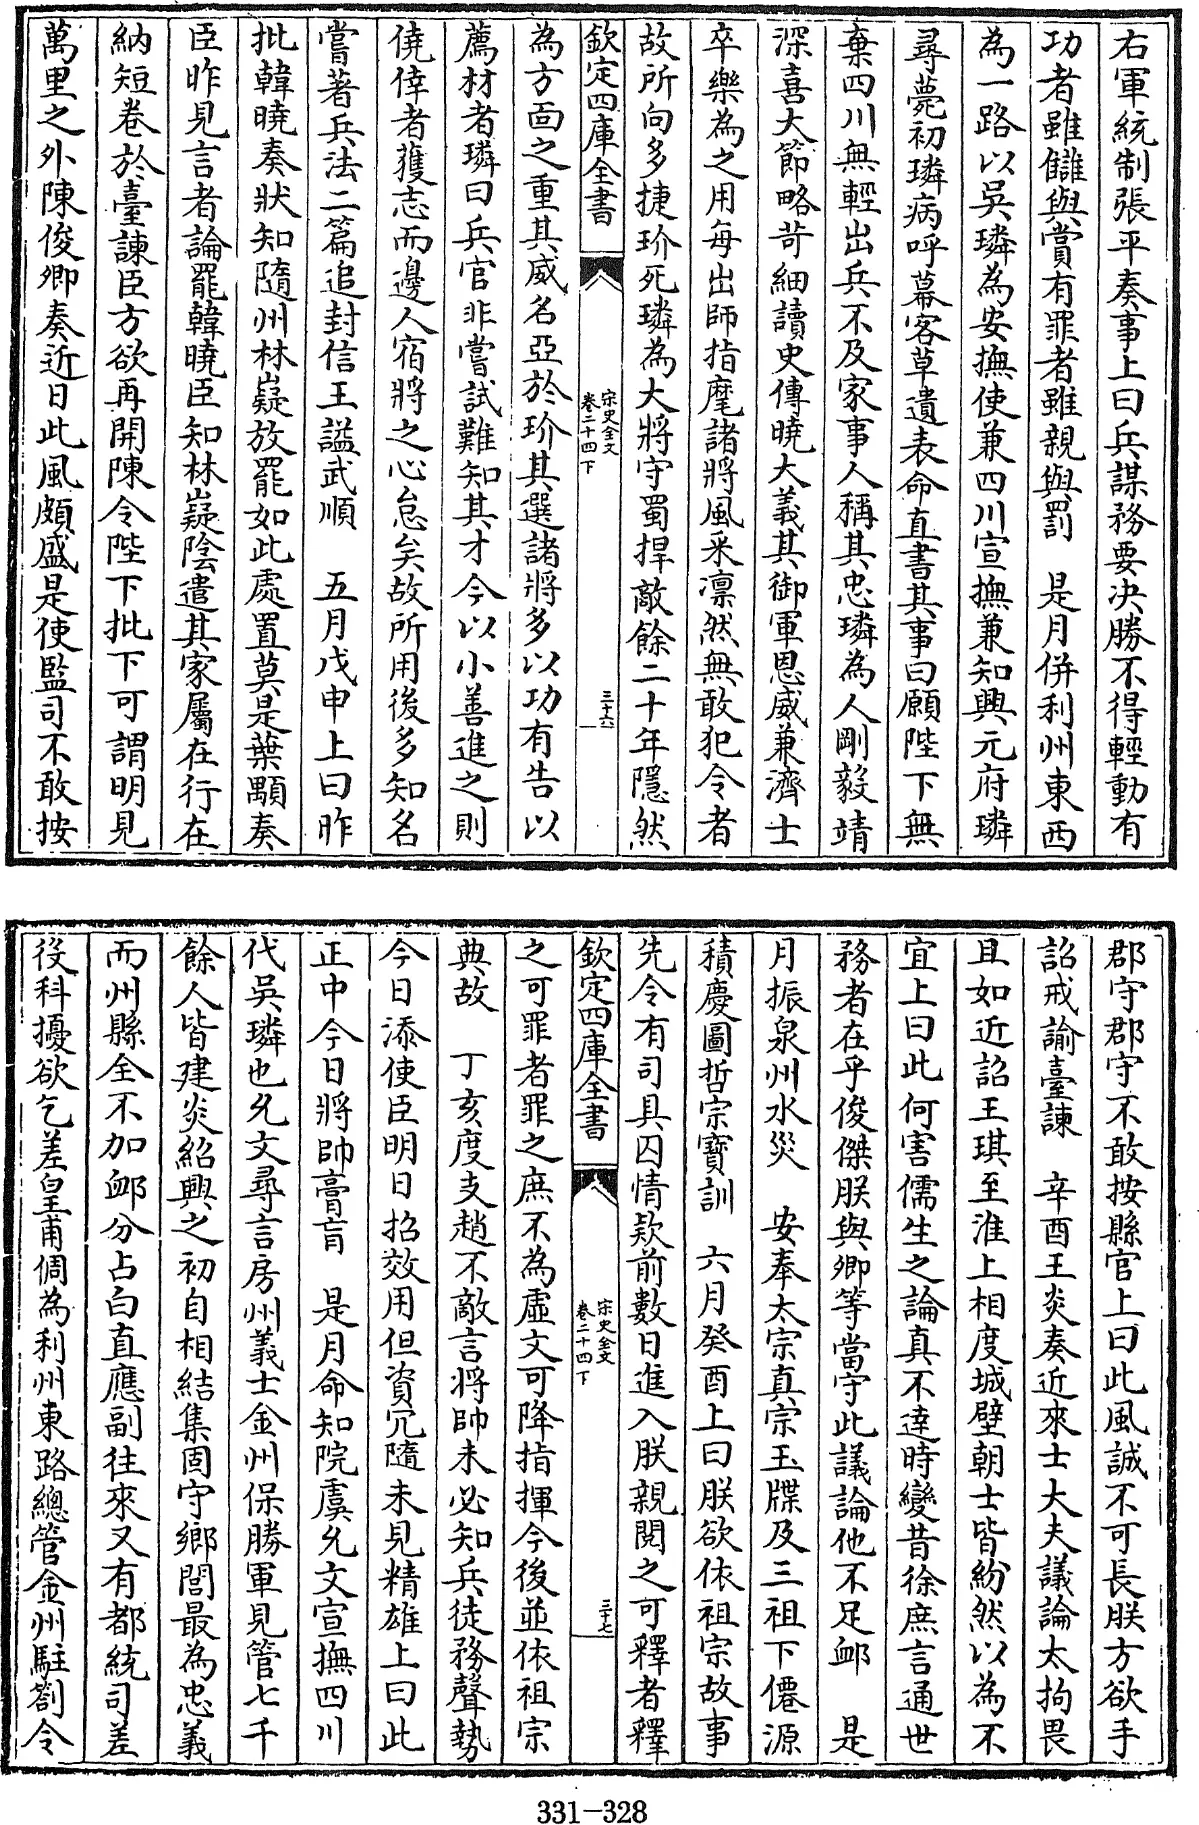 右軍統制張平奏事上曰兵謀務要决勝不得輕動有
功者雖讎與賞有罪者雖親與罰　是月併利州東西
為一路以吳璘為安撫使兼四川宣撫兼知興元府璘
尋薨初璘病呼幕客草遺表命直書其事曰願陛下無
棄四川無輕出兵不及家事人稱其忠璘為人剛毅靖
深喜大節略苛細讀史傳曉大義其御軍恩威兼濟士
卒樂為之用每出師指麾諸將風采凛然無敢犯令者
故所向多捷玠死璘為大將守蜀捍敵餘二十年隱然
欽定四庫全書
宋史全文
卷二十四下
三十六
為方面之重其威名亞於玠其選諸將多以功有告以
薦材者璘曰兵官非嘗試難知其才今以小善進之則
僥倖者獲志而邊人宿將之心怠矣故所用後多知名
嘗著兵法二篇追封信王謚武順　五月戊申上曰昨
批韓曉奏狀知隨州林嶷放罷如此處置莫是葉顒奏
臣昨見言者論罷韓曉臣知林嶷陰遣其家屬在行在
納短卷於臺諫臣方欲再開陳令陛下批下可謂明見
萬里之外陳俊卿奏近日此風頗盛是使監司不敢按
郡守郡守不敢按縣官上曰此風誠不可長朕方欲手
詔戒諭臺諫　辛酉王炎奏近來士大夫議論太拘畏
且如近詔王琪至淮上相度城壁朝士皆紛然以為不
宜上曰此何害儒生之論真不達時變昔徐庶言通世
務者在乎俊傑朕與卿等當守此議論他不足卹　是
月振泉州水災　安奉太宗真宗玉牒及三祖下僊源
積慶圖哲宗寶訓　六月癸酉上曰朕欲依祖宗故事
先令有司具囚情款前數日進入朕親閱之可釋者釋
欽定四庫全書
宋史全文
卷二十四下
三十七
之可罪者罪之庶不為虛文可降指揮今後並依祖宗
典故　丁亥度支趙不敵言將帥未必知兵徒務聲勢
今日添使臣明日招效用但資冗隨未見精雄上曰此
正中今日將帥膏肓　是月命知院虞允文宣撫四川
代吳璘也允文尋言房州義士金州保勝軍見管七千
餘人皆建炎紹興之初自相結集固守鄉閭最為忠義
而州縣全不加卹分占白直應副往來又有都統司差
役科擾欲乞差皇甫倜為利州東路總管金州駐劄令
331-328